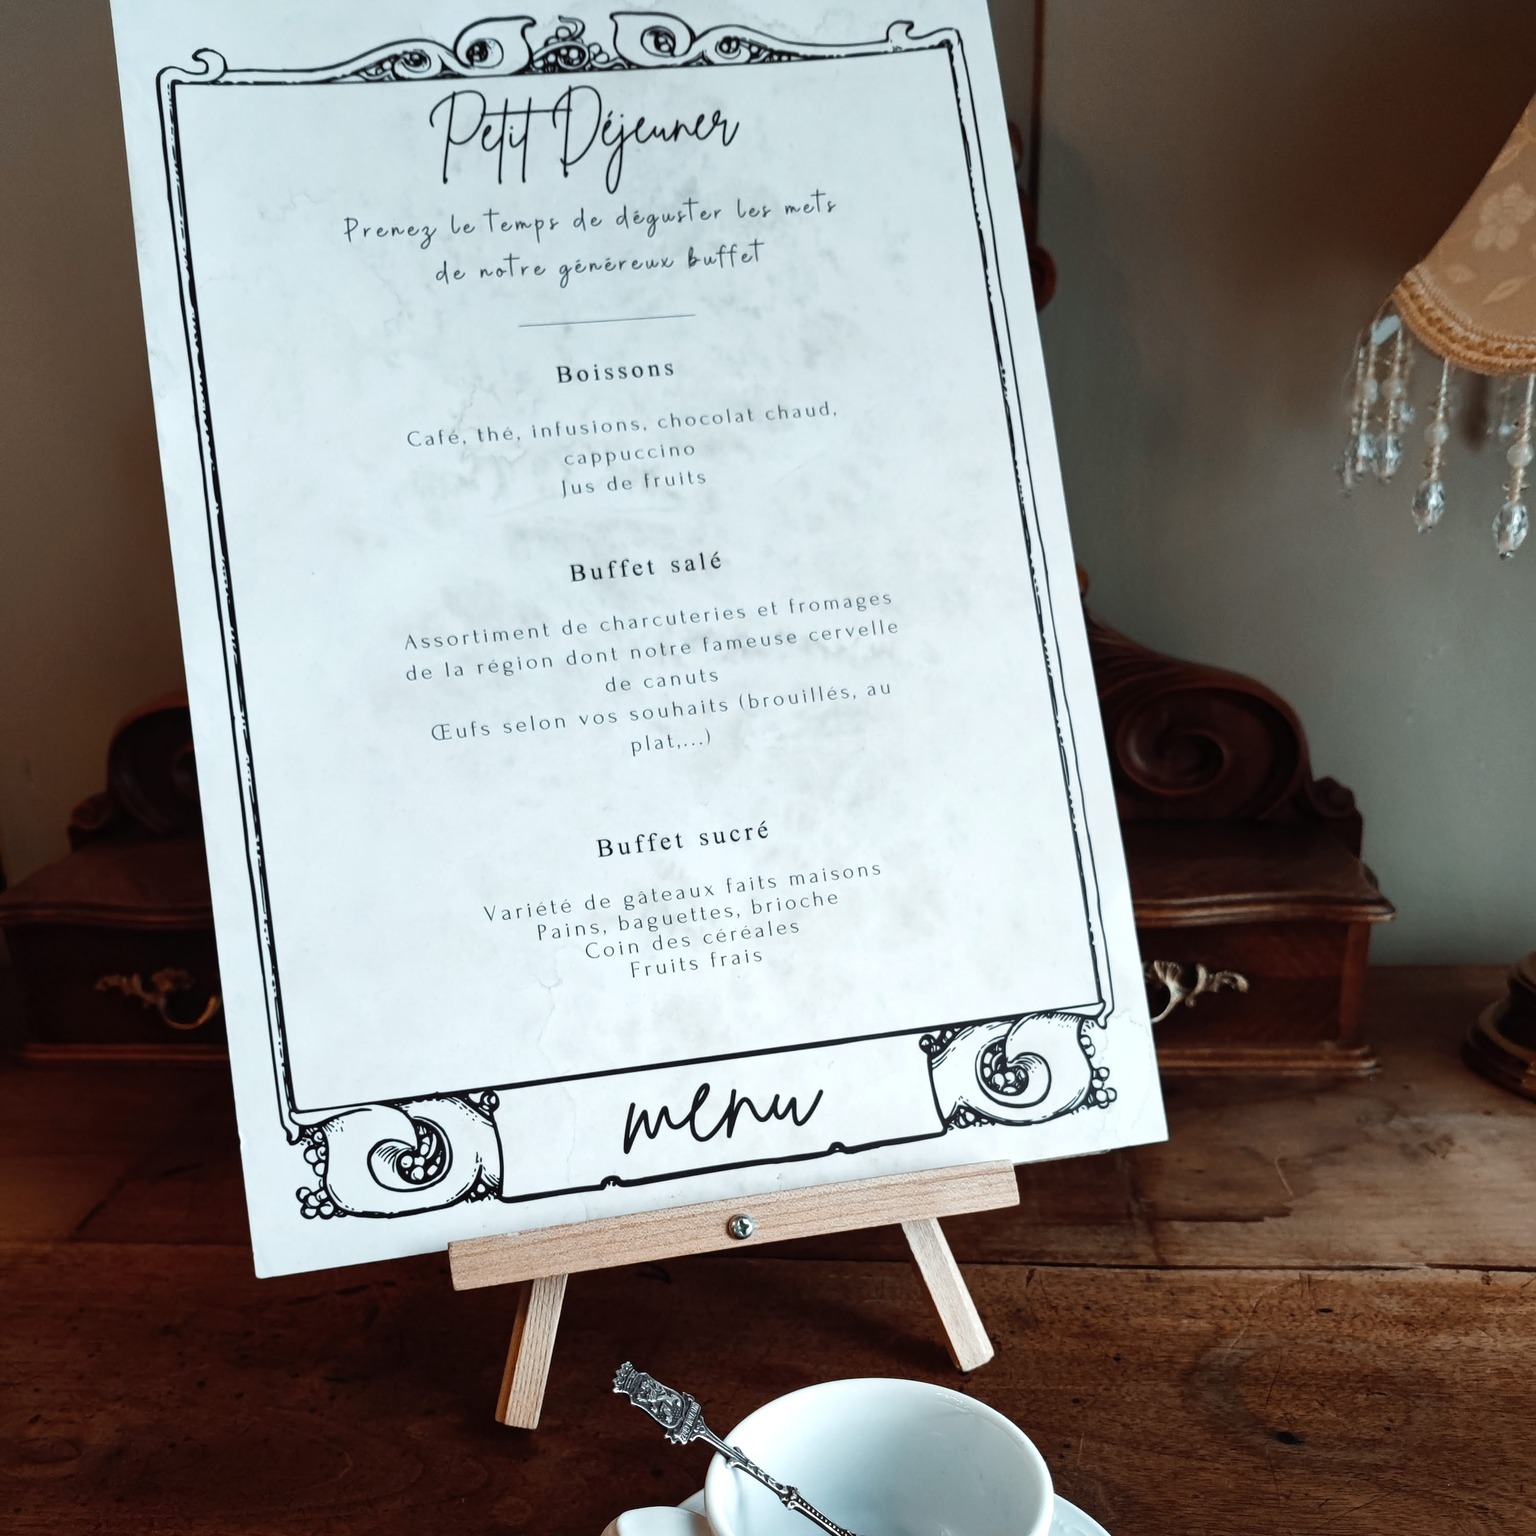 Petit Déjeuner
Prenez le temps de déguster les mets
de notre généreux buffet
Boissons
Café, thé, infusions, chocolat chaud,
cappuccino
Jus de fruits
Buffet salé
Assortiment de charcuteries et fromages
de la région dont notre fameuse cervelle
de canuts
Œufs selon vos souhaits (brouillés, au
plat,...)
Buffet sucré
Variété de gâteaux faits maisons
Pains, baguettes, brioche
Coin des céréales
Fruits frais
menu